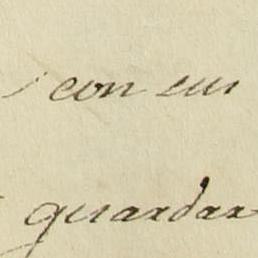 con cui
guardar